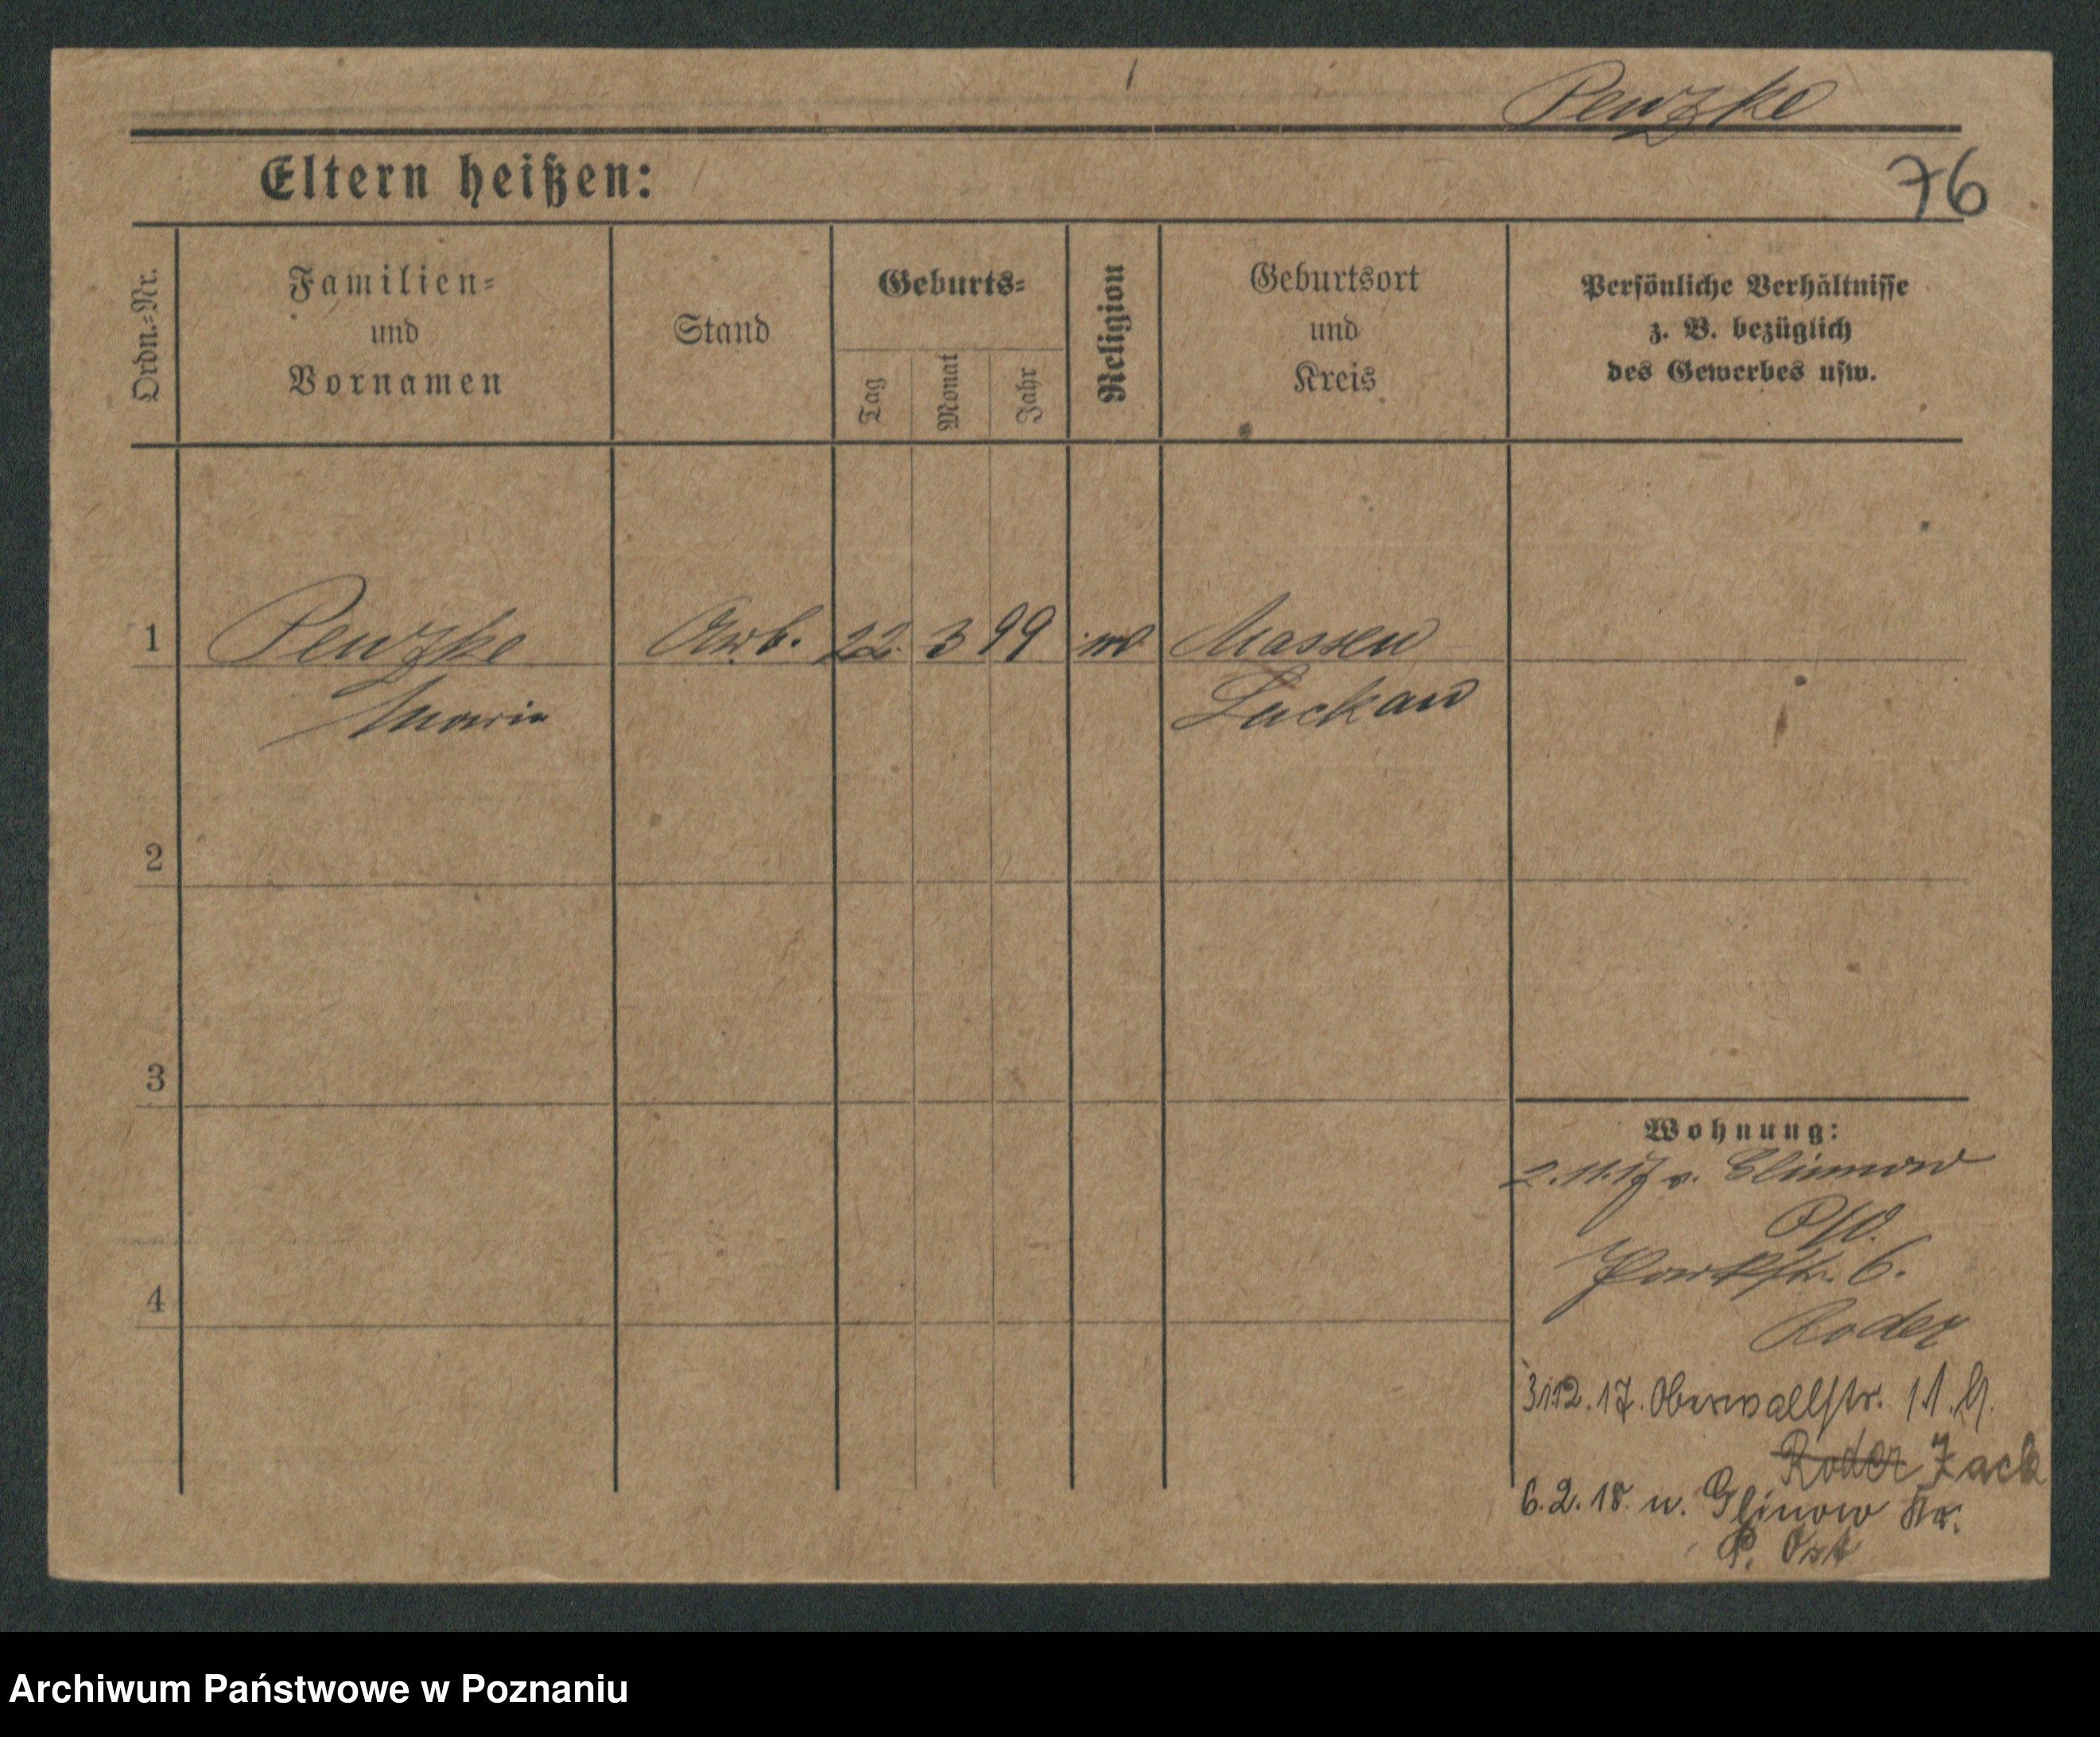 Penzke
76
Eltern heißen:
Ordn.=Nr.
Familien=
und
Vornamen
Stand
Geburts=
Tag
Monat
Jahr
Religion
Geburtsort
und
Kreis
Persönliche Verhältnisse
z. B. bezüglich
des Gewerbes usw.
1 Penzke Arb. 22. 3 99 Massen
Marie Luckau
2
3
Wohnung:
2.11.17 v. Glinnow
Parkstr. 6.
Roder
4
31.12.17. Oberwallstr. 11.
Roder Zack
6.2.18. n. Glinow Kr.
P. Ost
Archiwum Państwowe w Poznaniu